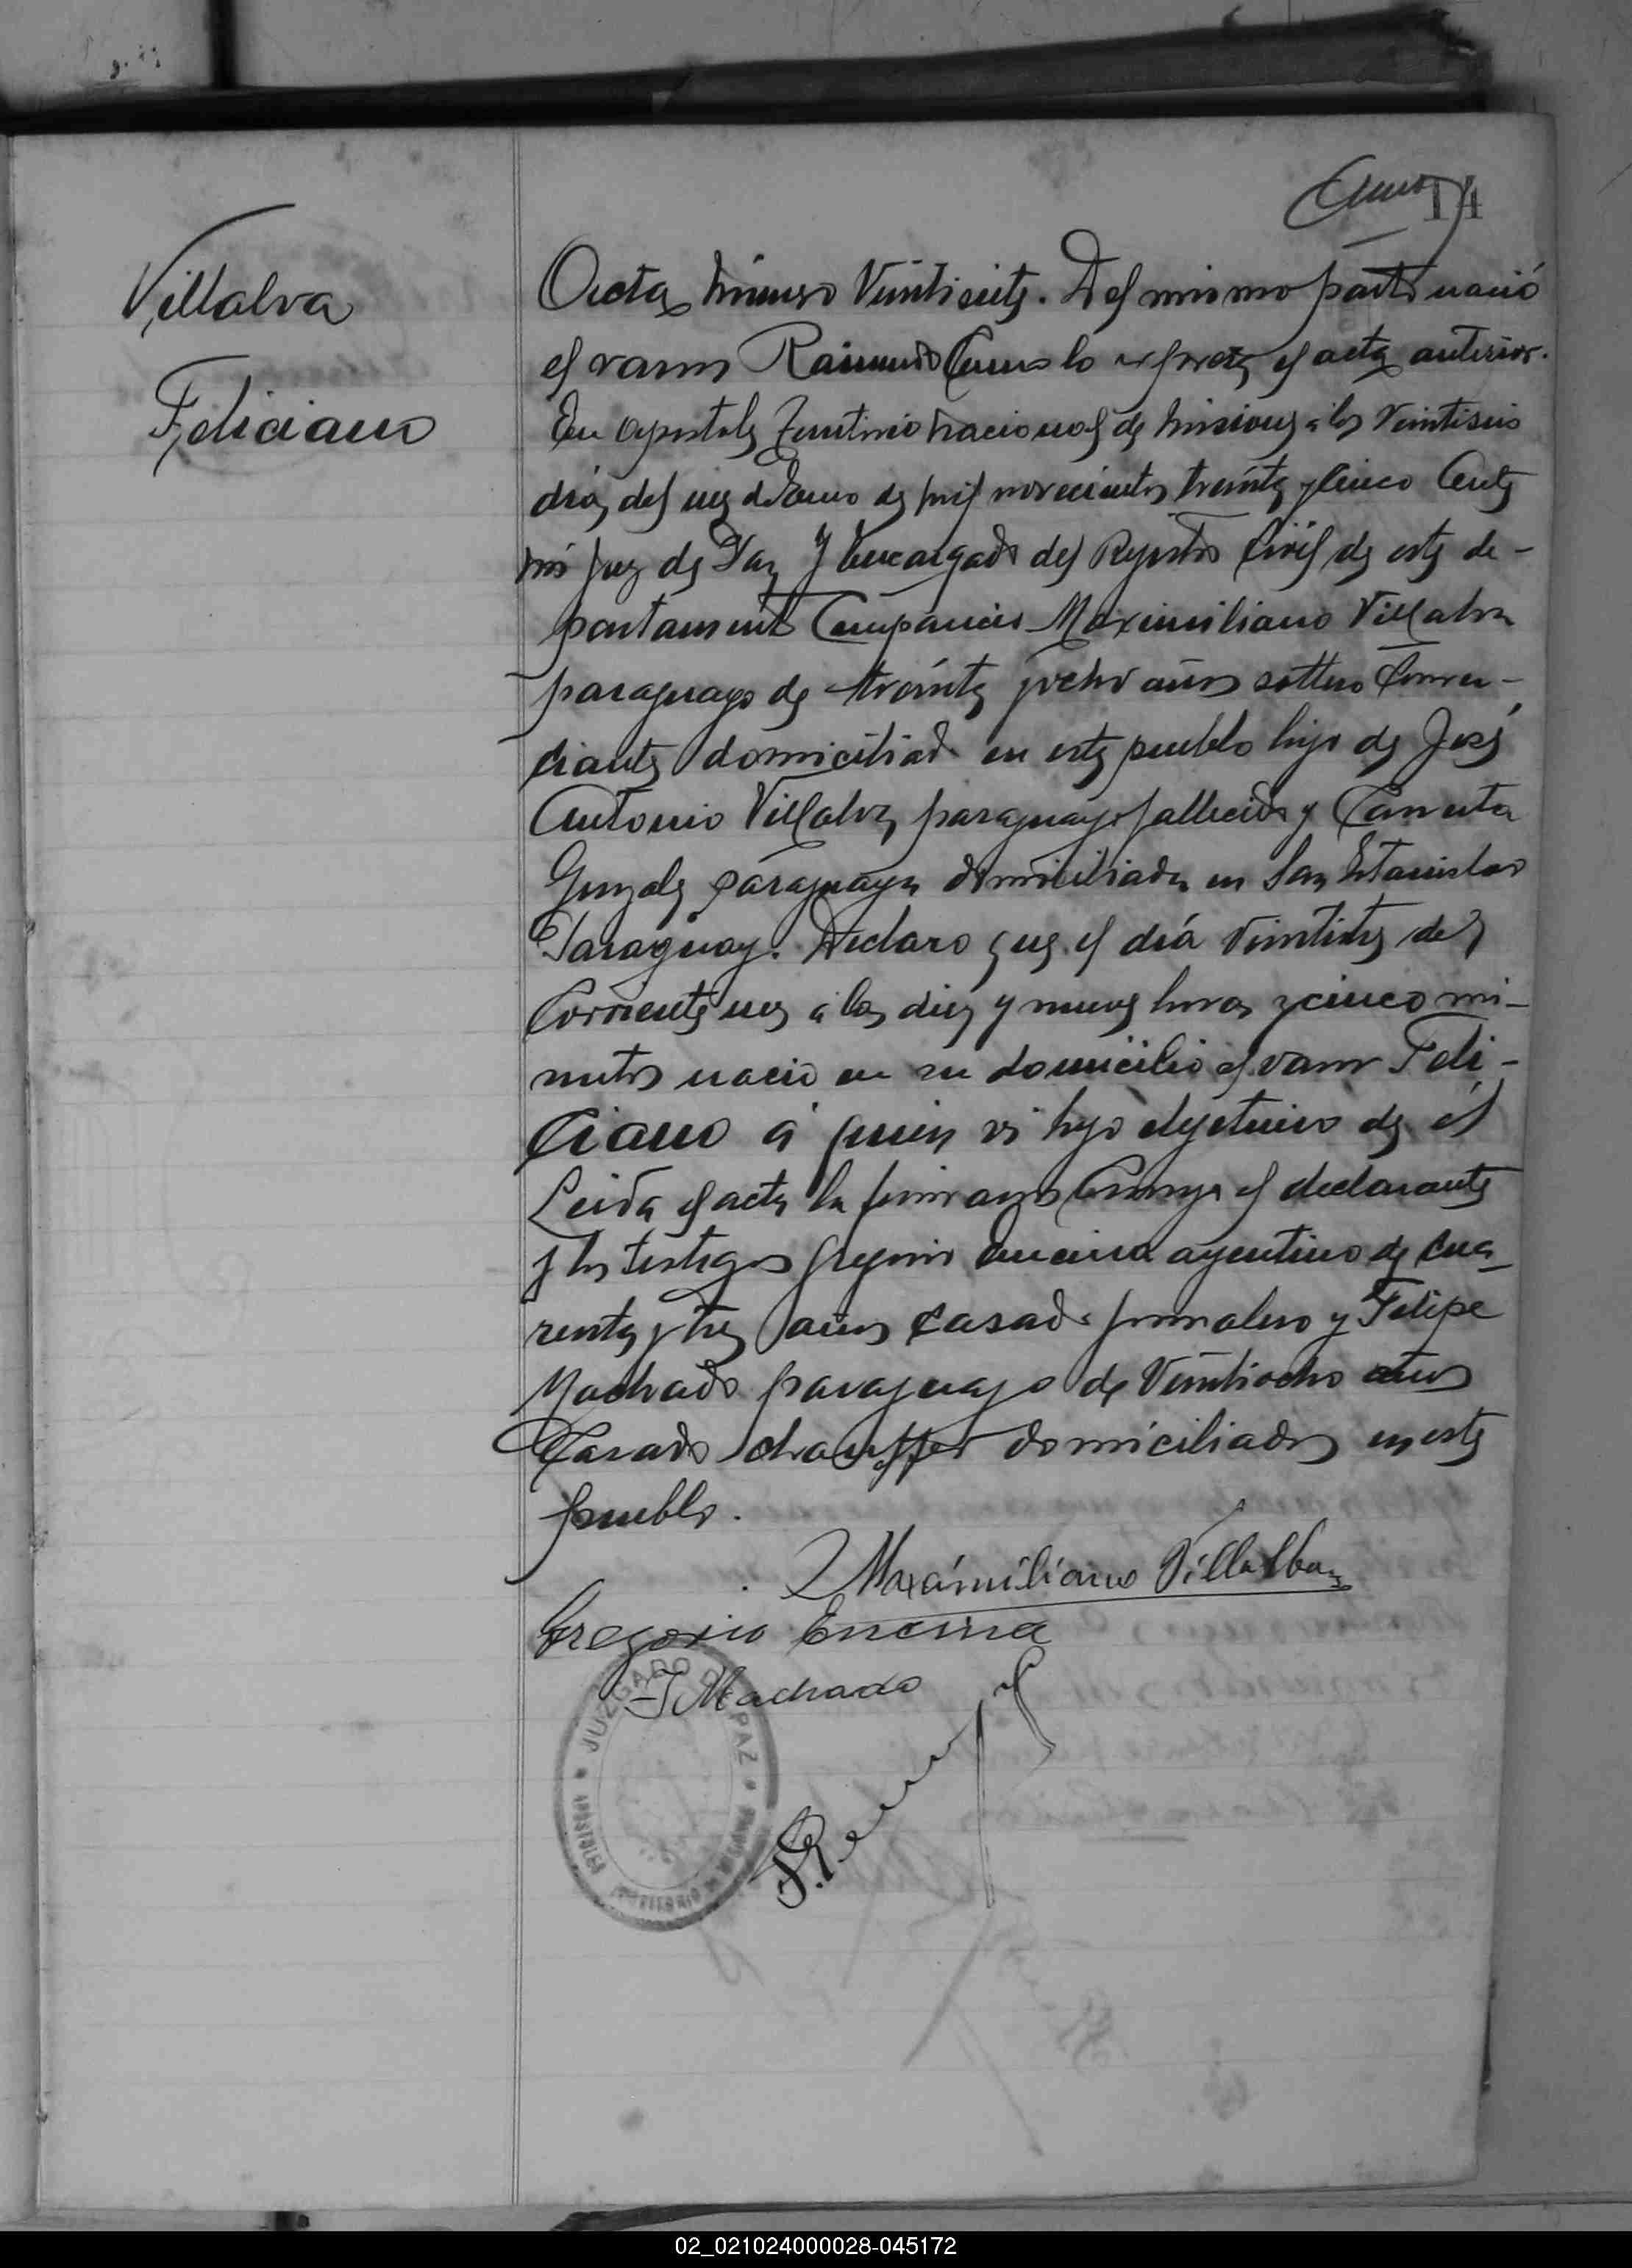 14
Villalva
Feliciano
Acta número Veintisiete. Del mismo parto nació
el varon Raimundo Como lo expresa el acta anterior.
En Apostoles Territorio Nacional de Misiones a los Veintiseis
días del mes de Enero de mil novecientos treinta y cinco Ante
mi Juez de Paz y Encargado del Registro Civil de este de-
partamento Compareció Maximiliano Villalva
paraguayo de treinta y ocho años soltero Comer-
ciante domiciliado en este pueblo hijo de José
Antonio Villalva paraguayo fallecido y Canuta
Gonzalez paraguaya domiciliada en San Estanislao
Paraguay. Declaro que el día Veintitres del
Corriente mes a las diez y nueve horas y cinco mi-
nutos nacio en su domicilio el varon Feli-
ciano a quien vi hijo de él
Leida el acta la firmaron Conmigo el declarante
y los testigos Gregorio Encina argentino de cua-
renta y tres años casado jornalero y Felipe
Machado paraguayo de Veintiocho años
Casado chauffer domiciliados en este
pueblo.
Maximiliano Villalba
Gregorio Encina
F Machado
JUZGADO DE PAZ
APOSTOLES
02_021024000028-045172